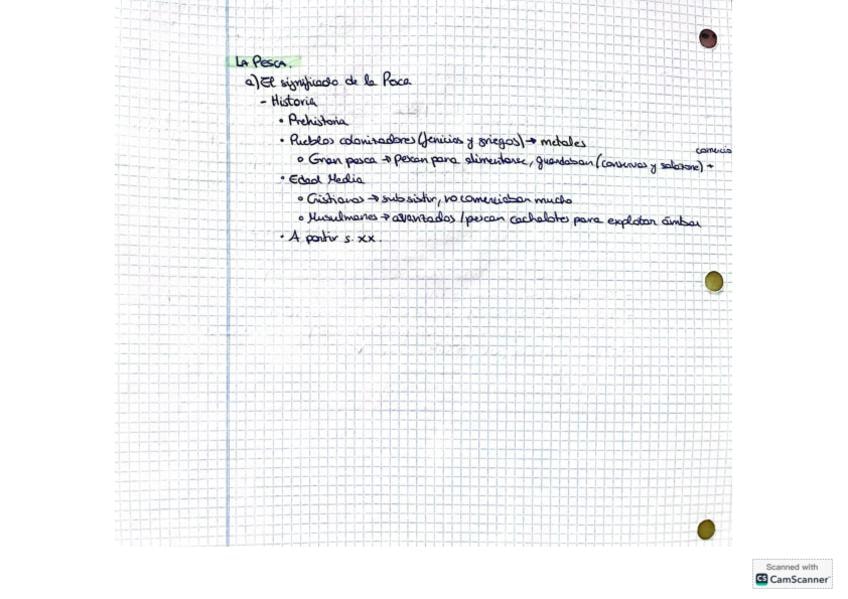 LA PESCA.
a) El significado de la Pesca
- Historia
• Prehistoria
• Pueblos colonizadores (fenicios y griegos) → metales
comercio
○ Gran pesca → pescan para alimentarse, guardaban (conservas y salazone) +
• Edad Media
○ Cristianos → subsistir, no comerciaban mucho
○ Musulmanes → avanzados / pescan cachalotes para explotar ámbar
• A partir s. XX.
Scanned with
CS CamScanner